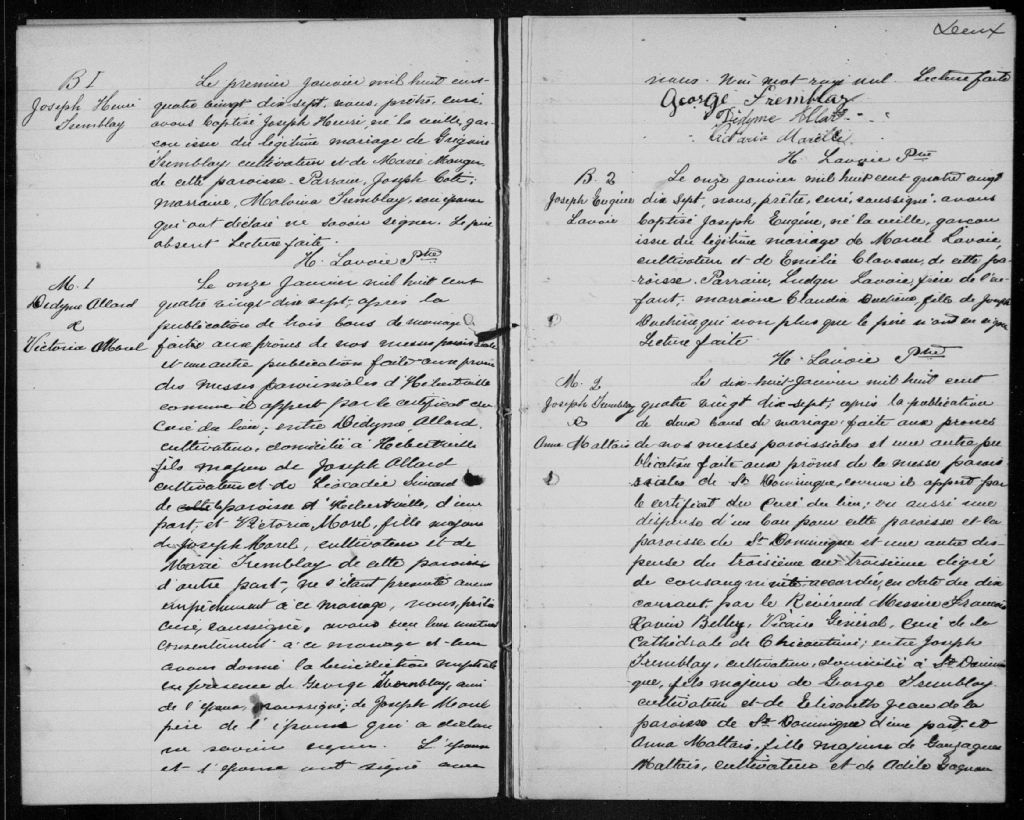 B 1
Joseph Henri
Tremblay
Le premier Janvier mil huit cent
quatre vingt dix-sept, nous, prêtre, curé,
avons baptisé Joseph Henri, né la veille, gar-
çon issu du légitime mariage de Grégoire
Tremblay cultivateur et de Marie Mauger
de cette paroisse. Parrain, Joseph Coté;
marraine, Malvina Tremblay, son épouse
qui ont déclaré ne savoir signer. Le père
absent Lecture faite.
H. Lavoie Ptre
M. 1
Didyme Allard
&
Victoria Morel
Le onze Janvier mil huit cent
quatre vingt dix sept, après la
publication de trois bans de mariage
faite aux prônes de nos messes paroissiales
et une autre publication faite aux prônes
des messes paroissiales d'Hébertville
comme il appert par le certificat du
Curé du lieu; entre Didyme Allard
cultivateur, domicilié à Hébertville
fils majeur de Joseph Allard
cultivateur et de Léocadie Simard
de cette la paroisse d'Hébertville, d'une
part; et Victoria Morel, fille majeure
de Joseph Morel, cultivateur et de
Marie Tremblay de cette paroisse
d'autre part, ne s'étant présenté aucun
empêchement à ce mariage, nous, prêtre
curé, soussigné, avons reçu leur mutuel
consentement à ce mariage et leur
avons donné la bénédiction nuptiale
en présence de George Tremblay, ami
de l'époux, soussigné; de Joseph Morel
père de l'épouse qui a déclaré
ne savoir signer. L'époux
et l'épouse ont signé avec
Deux
nous. Lecture faite
George Tremblay
Didyme Allard
Victoria Morell
H. Lavoie Ptre
B. 2
Joseph Eugène
Lavoie
Le onze Janvier mil huit cent quatre vingt
dix sept, nous, prêtre, curé, soussigné avons
baptisé Joseph Eugène, né la veille, garçon
issu du légitime mariage de Marcel Lavoie,
cultivateur et de Emélie Claveau, de cette pa-
roisse. Parrain, Ludger Lavoie, frère de l'en-
fant, marraine Claudia Duchêne, fille de Joseph
Duchêne qui non plus que le père n'ont su signer
Lecture faite
H. Lavoie Ptre
M. 2
Joseph Tremblay
&
Anna Maltais
Le dix-huit Janvier mil huit cent
quatre vingt dix-sept, après la publication
de deux bans de mariage faite aux prônes
de nos messes paroissiales et une autre pu-
blication faite aux prônes de la messe parois-
siales de St Dominique, comme il appert par
le certificat du curé du lieu; vu aussi une
dispense d'un ban pour cette paroisse et la
paroisse de St Dominique et une autre dis-
pense du troisième au troisième dégré
de consanguinité accordée, en date du dix
courant, par le Révérend Messire François
Xavier Belley, Vicaire Général, curé de la
Cathédrale de Chicoutimi; entre Joseph
Tremblay, cultivateur, domicilié à St Domini-
que, fils majeur de George Tremblay
cultivateur et de Elisabeth Jean de la
paroisse de St Dominique d'une part; et
Anna Maltais, fille majeure de Gonzague
Maltais, cultivateur et de Adèle Gagnon